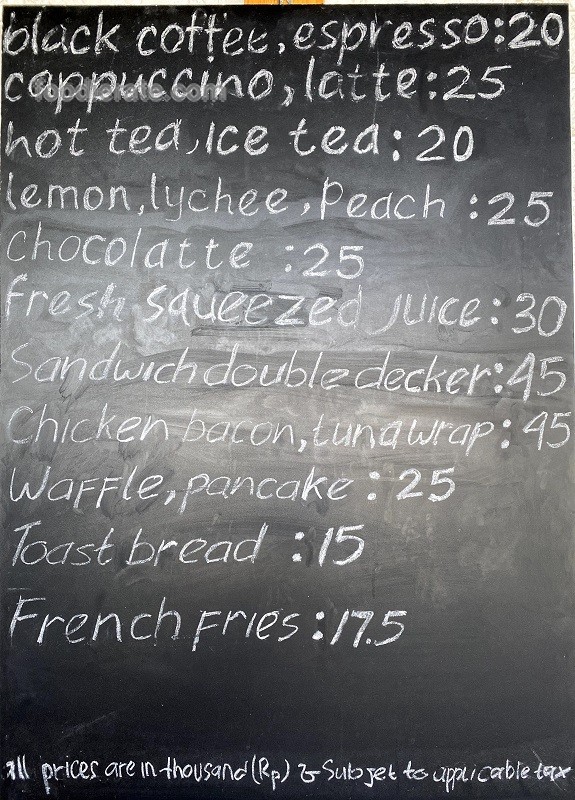 black coffee, espresso:20
cappuccino, latte:25
foodierate.com
hot tea, Ice tea:20
lemon, lychee, Peach :25
chocolatte :25
Fresh squeezed juice:30
Sandwich double decker:45
Chicken bacon, tuna wrap:45
Waffle, pancake :25
Toast bread :15
French Fries :17.5
all prices are in thousand (Rp) & Subjet to applicable tax